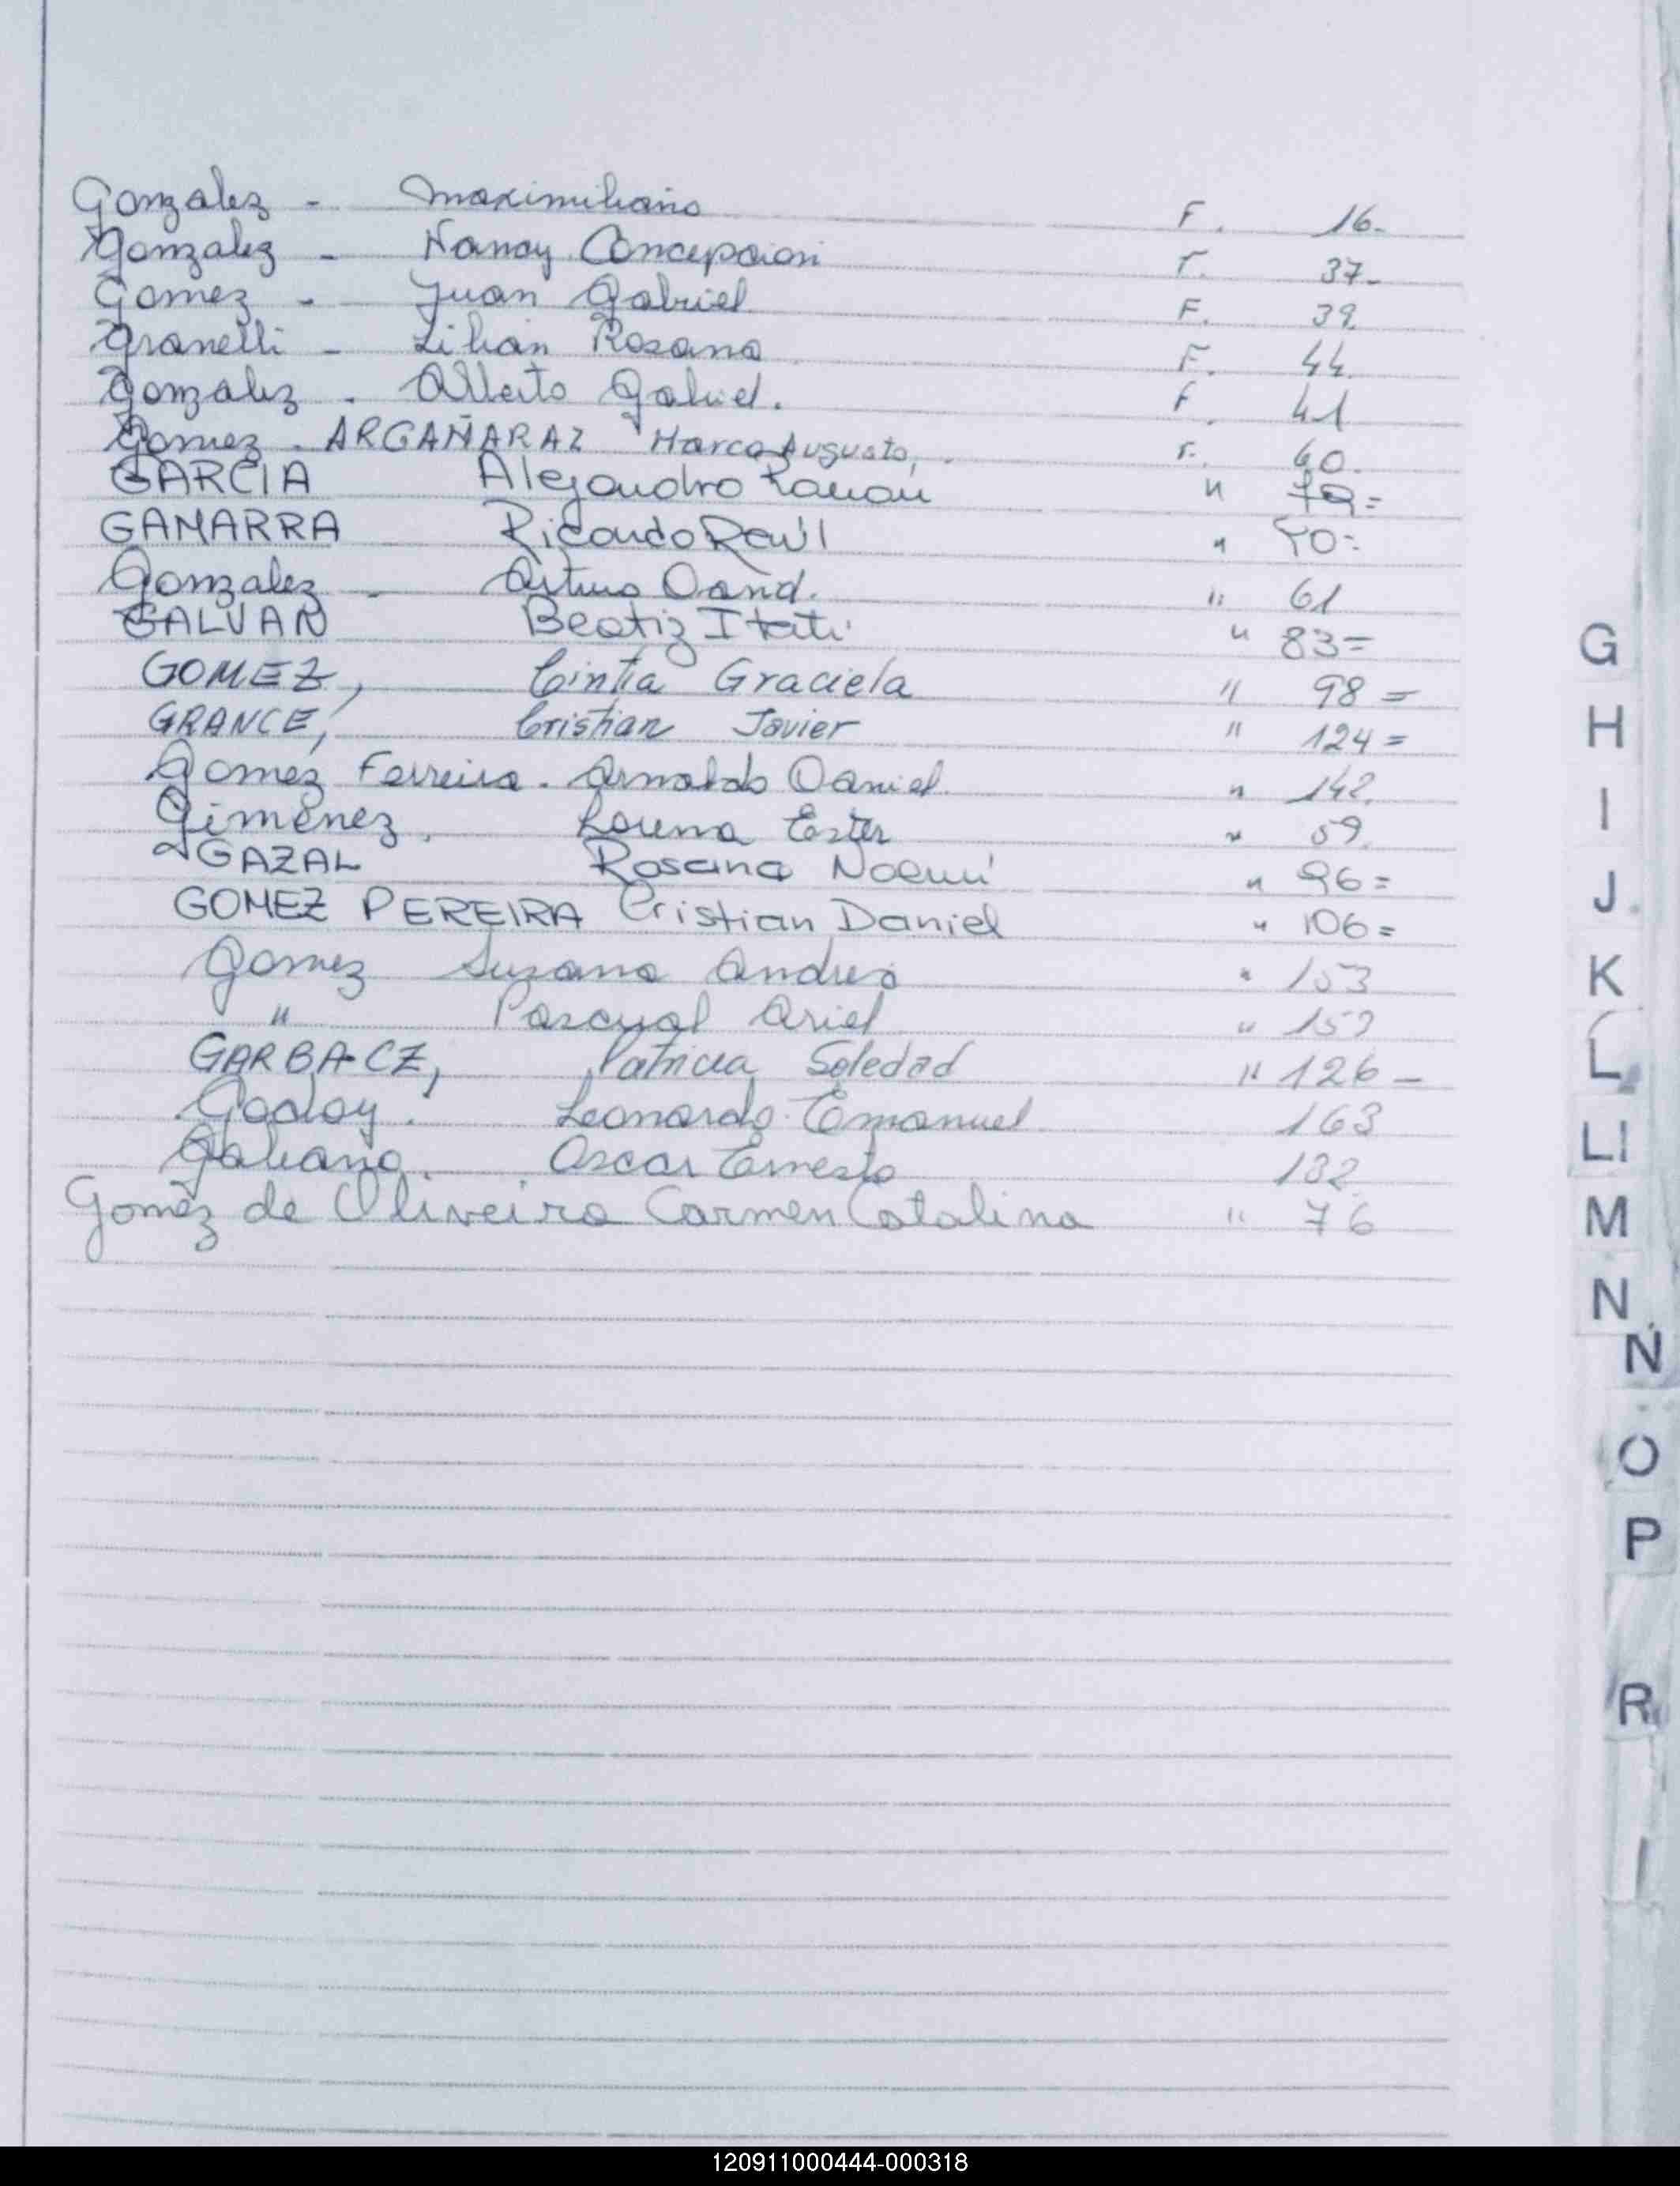 Gonzalez - Maximiliano F. 16-
Gonzalez - Nancy Concepcion F. 37-
Gomez - Juan Gabriel F. 39
Granelli - Lilian Rosana F. 44
Gonzalez - Alberto Gabriel. F. 41
Gomez - ARGAÑARAZ Marco Augusto, F. 60.
GARCIA Alejandro Ramón " 79=
GAMARRA Ricardo Raúl " 50=
Gonzalez - Arturo David. " 61
GALVAN Beatiz Itati " 83=
GOMEZ, Cintia Graciela " 98=
GRANCE, Cristian Javier " 124=
Gomez Ferreira - Arnaldo Daniel. " 142.
Gimenez, Lorena Ester " 59.
GAZAL Rosana Noemí " 96=
GOMEZ PEREIRA Cristian Daniel " 106=
Gomez Suzana Andrea " 153
" Pascual Ariel " 159
GARBACZ, Patricia Soledad " 126-
Godoy. Leonardo Emanuel 163
Galeano. Oscar Ernesto 132
Gomez de Oliveira Carmen Catalina " 76
G
H
I
J
K
L
Ll
M
N
Ñ
O
P
R
120911000444-000318